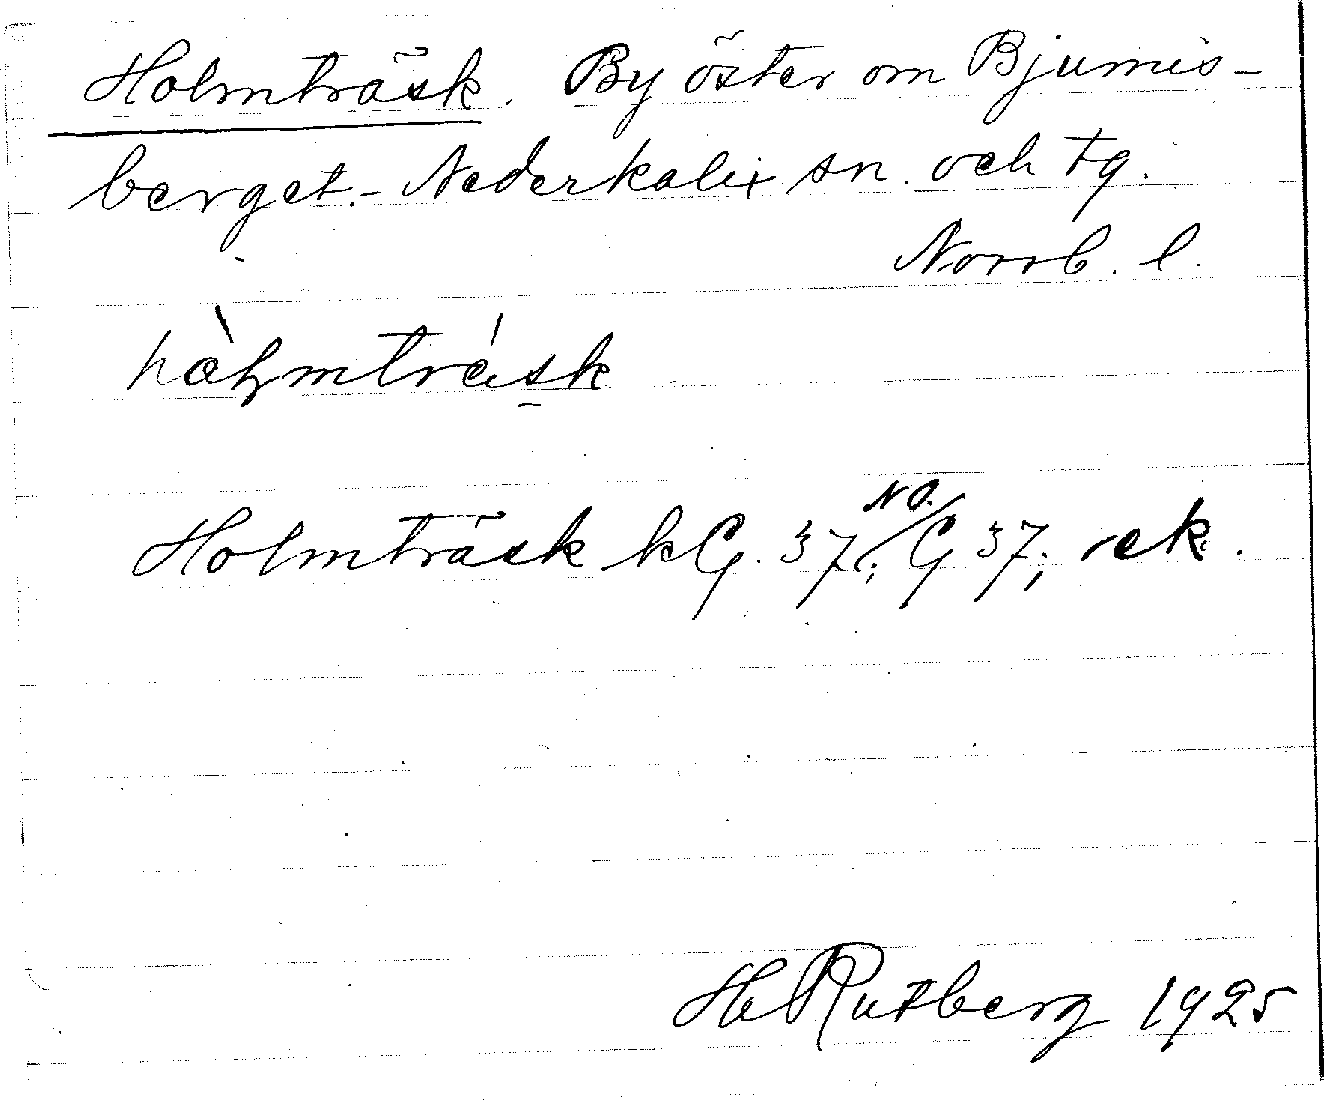 Holmträsk. By öster om Bjumis-
berget.- Nederkalix sn. och tg.
Norrb. l.
hòlmtrǽsk
Holmträsk kG. 37; NO./G 37; ek.
H Rutberg 1925